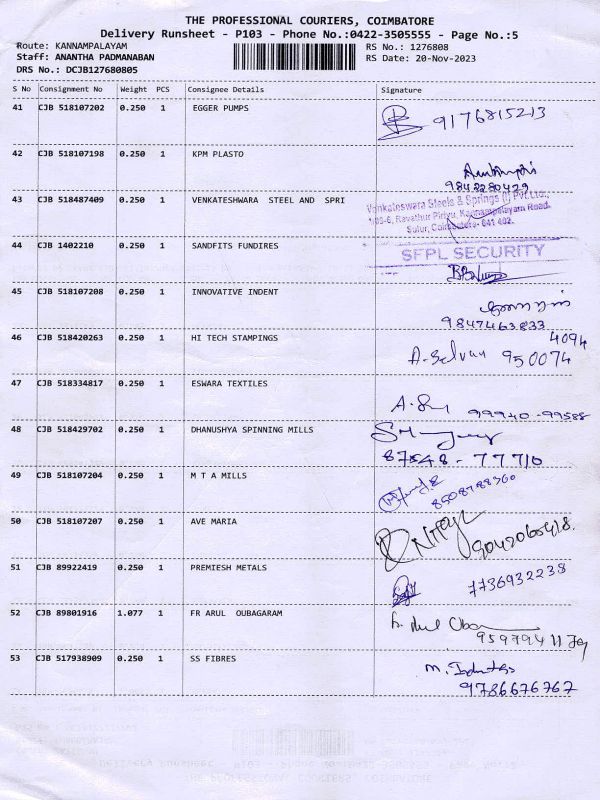 THE PROFESSIONAL COURIERS, COIMBATORE
Delivery Runsheet - P103 - Phone No.:0422-3505555 - Page No.:5
Route: KANNAMPALAYAM RS No.: 1276808
Staff: ANANTHA PADMANABAN RS Date: 20-Nov-2023
DRS No.: DCJB127680805
S No Consignment No Weight PCS Consignee Details Signature
41 CJB 518107202 0.250 1 EGGER PUMPS 9176815213
42 CJB 518107198 0.250 1 KPM PLASTO
9842280429
43 CJB 518487409 0.250 1 VENKATESHWARA STEEL AND SPRI
Venkateswara Steels & Springs (I) Pvt Ltd.,
Ravathur Pirivu, Kannampalayam Road,
Sulur, Coimbatore - 641 402.
44 CJB 1402210 0.250 1 SANDFITS FUNDIRES SFPL SECURITY
45 CJB 518107208 0.250 1 INNOVATIVE INDENT
9847463833
46 CJB 518420263 0.250 1 HI TECH STAMPINGS 4094
A. Selvan 950074
47 CJB 518334817 0.250 1 ESWARA TEXTILES
99940-99588
48 CJB 518429702 0.250 1 DHANUSHYA SPINNING MILLS
87548-77710
49 CJB 518107204 0.250 1 M T A MILLS
8508788360
50 CJB 518107207 0.250 1 AVE MARIA
51 CJB 89922419 0.250 1 PREMIESH METALS 7736932238
52 CJB 89801916 1.077 1 FR ARUL OUBAGARAM
53 CJB 517938909 0.250 1 SS FIBRES
9786676767